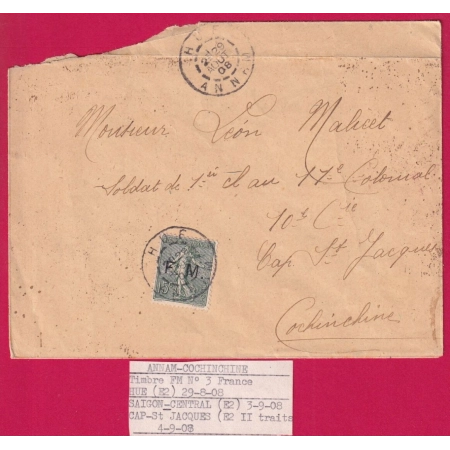 HUE
29
AOUT
08
ANN
Monsieur Léon Malicet
Soldat de 1ère cl au 11e Colonial
10e Cie
Cap St Jacques
Cochinchine
HUE
F M
ANNAM-COCHINCHINE
Timbre FM N° 3 France
HUE (E2) 29-8-08
SAIGON-CENTRAL (E2) 3-9-08
CAP-St JACQUES (E2 II traits
4-9-08